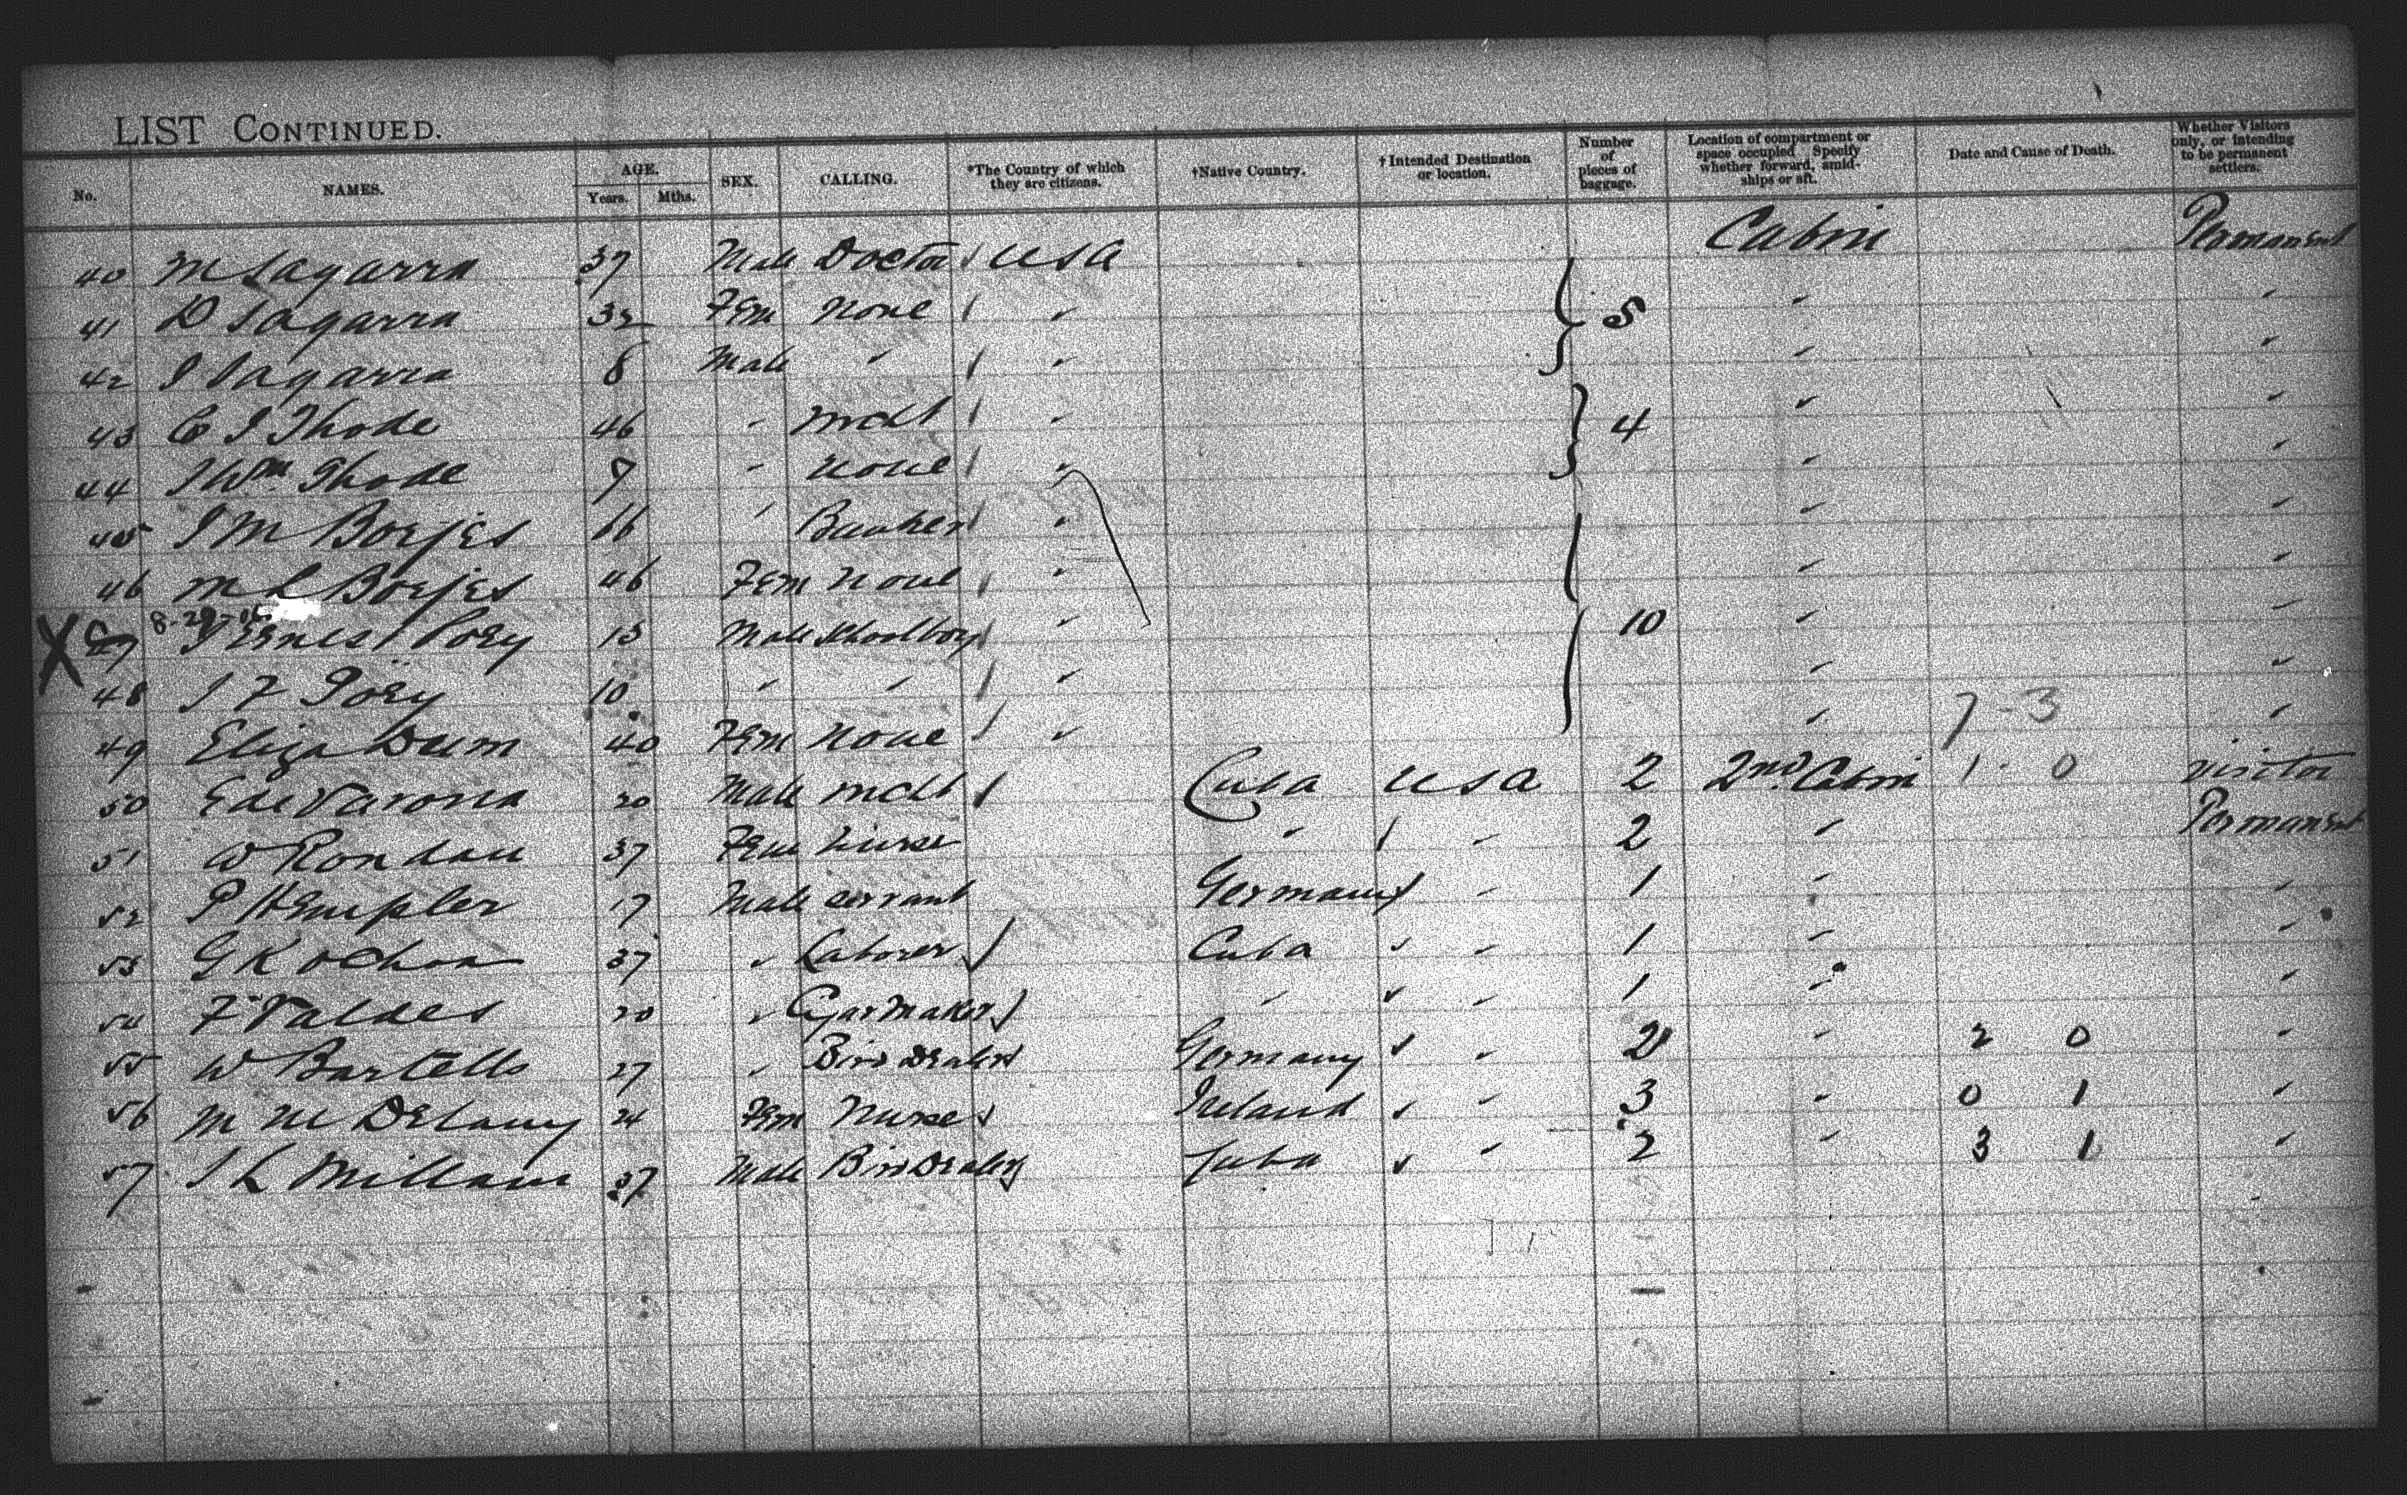 LIST CONTINUED.
No. NAMES. AGE. Years. Mths. SEX. CALLING. *The Country of which they are citizens. †Native Country. †Intended Destination or location. Number of pieces of baggage. Location of compartment or space occupied Specify whether forward, amidships or aft. Date and Cause of Death. Whether Visitors only, or intending to be permanent settlers.
40 M Sagarra 37 Male Doctor / USA Cabin Permanent
41 D Sagarra 32 Fem None / " } 5 " "
42 I Sagarra 8 Male " / " " "
43 C I Thode 46 " mcht / " } 4 " "
44 I Wm Thode 9 " none / " " "
45 I M Borjes 66 " Banker / " " "
46 M L Borjes 46 Fem none / " " "
8-29-06
X 47 I Ernest Poey 13 Male Schoolboy / " 10 " "
48 I F Poey 10 " " / " " "
49 Eliza Daum 40 Fem None / " " 7-3 "
50 E de Varona 20 Male mcht / Cuba USA 2 2nd Cabin 1-0 visitor
51 W Rondau 37 Fem nurse " / " 2 " Permanent
52 P Hempler 17 Male servant Germany / " 1 " "
53 G K ochoa 37 " Laborer / Cuba " " 1 " "
54 F Valdes 20 " Cigarmaker / " " " 1 " "
55 W Bartells 27 " Bird Dealer Germany " " 2 " 2 0 "
56 M M Delany 24 Fem Nurse Ireland " " 3 " 0 1 "
57 I L Millam 37 Male Bird Dealer Cuba " " 2 " 3 1 "